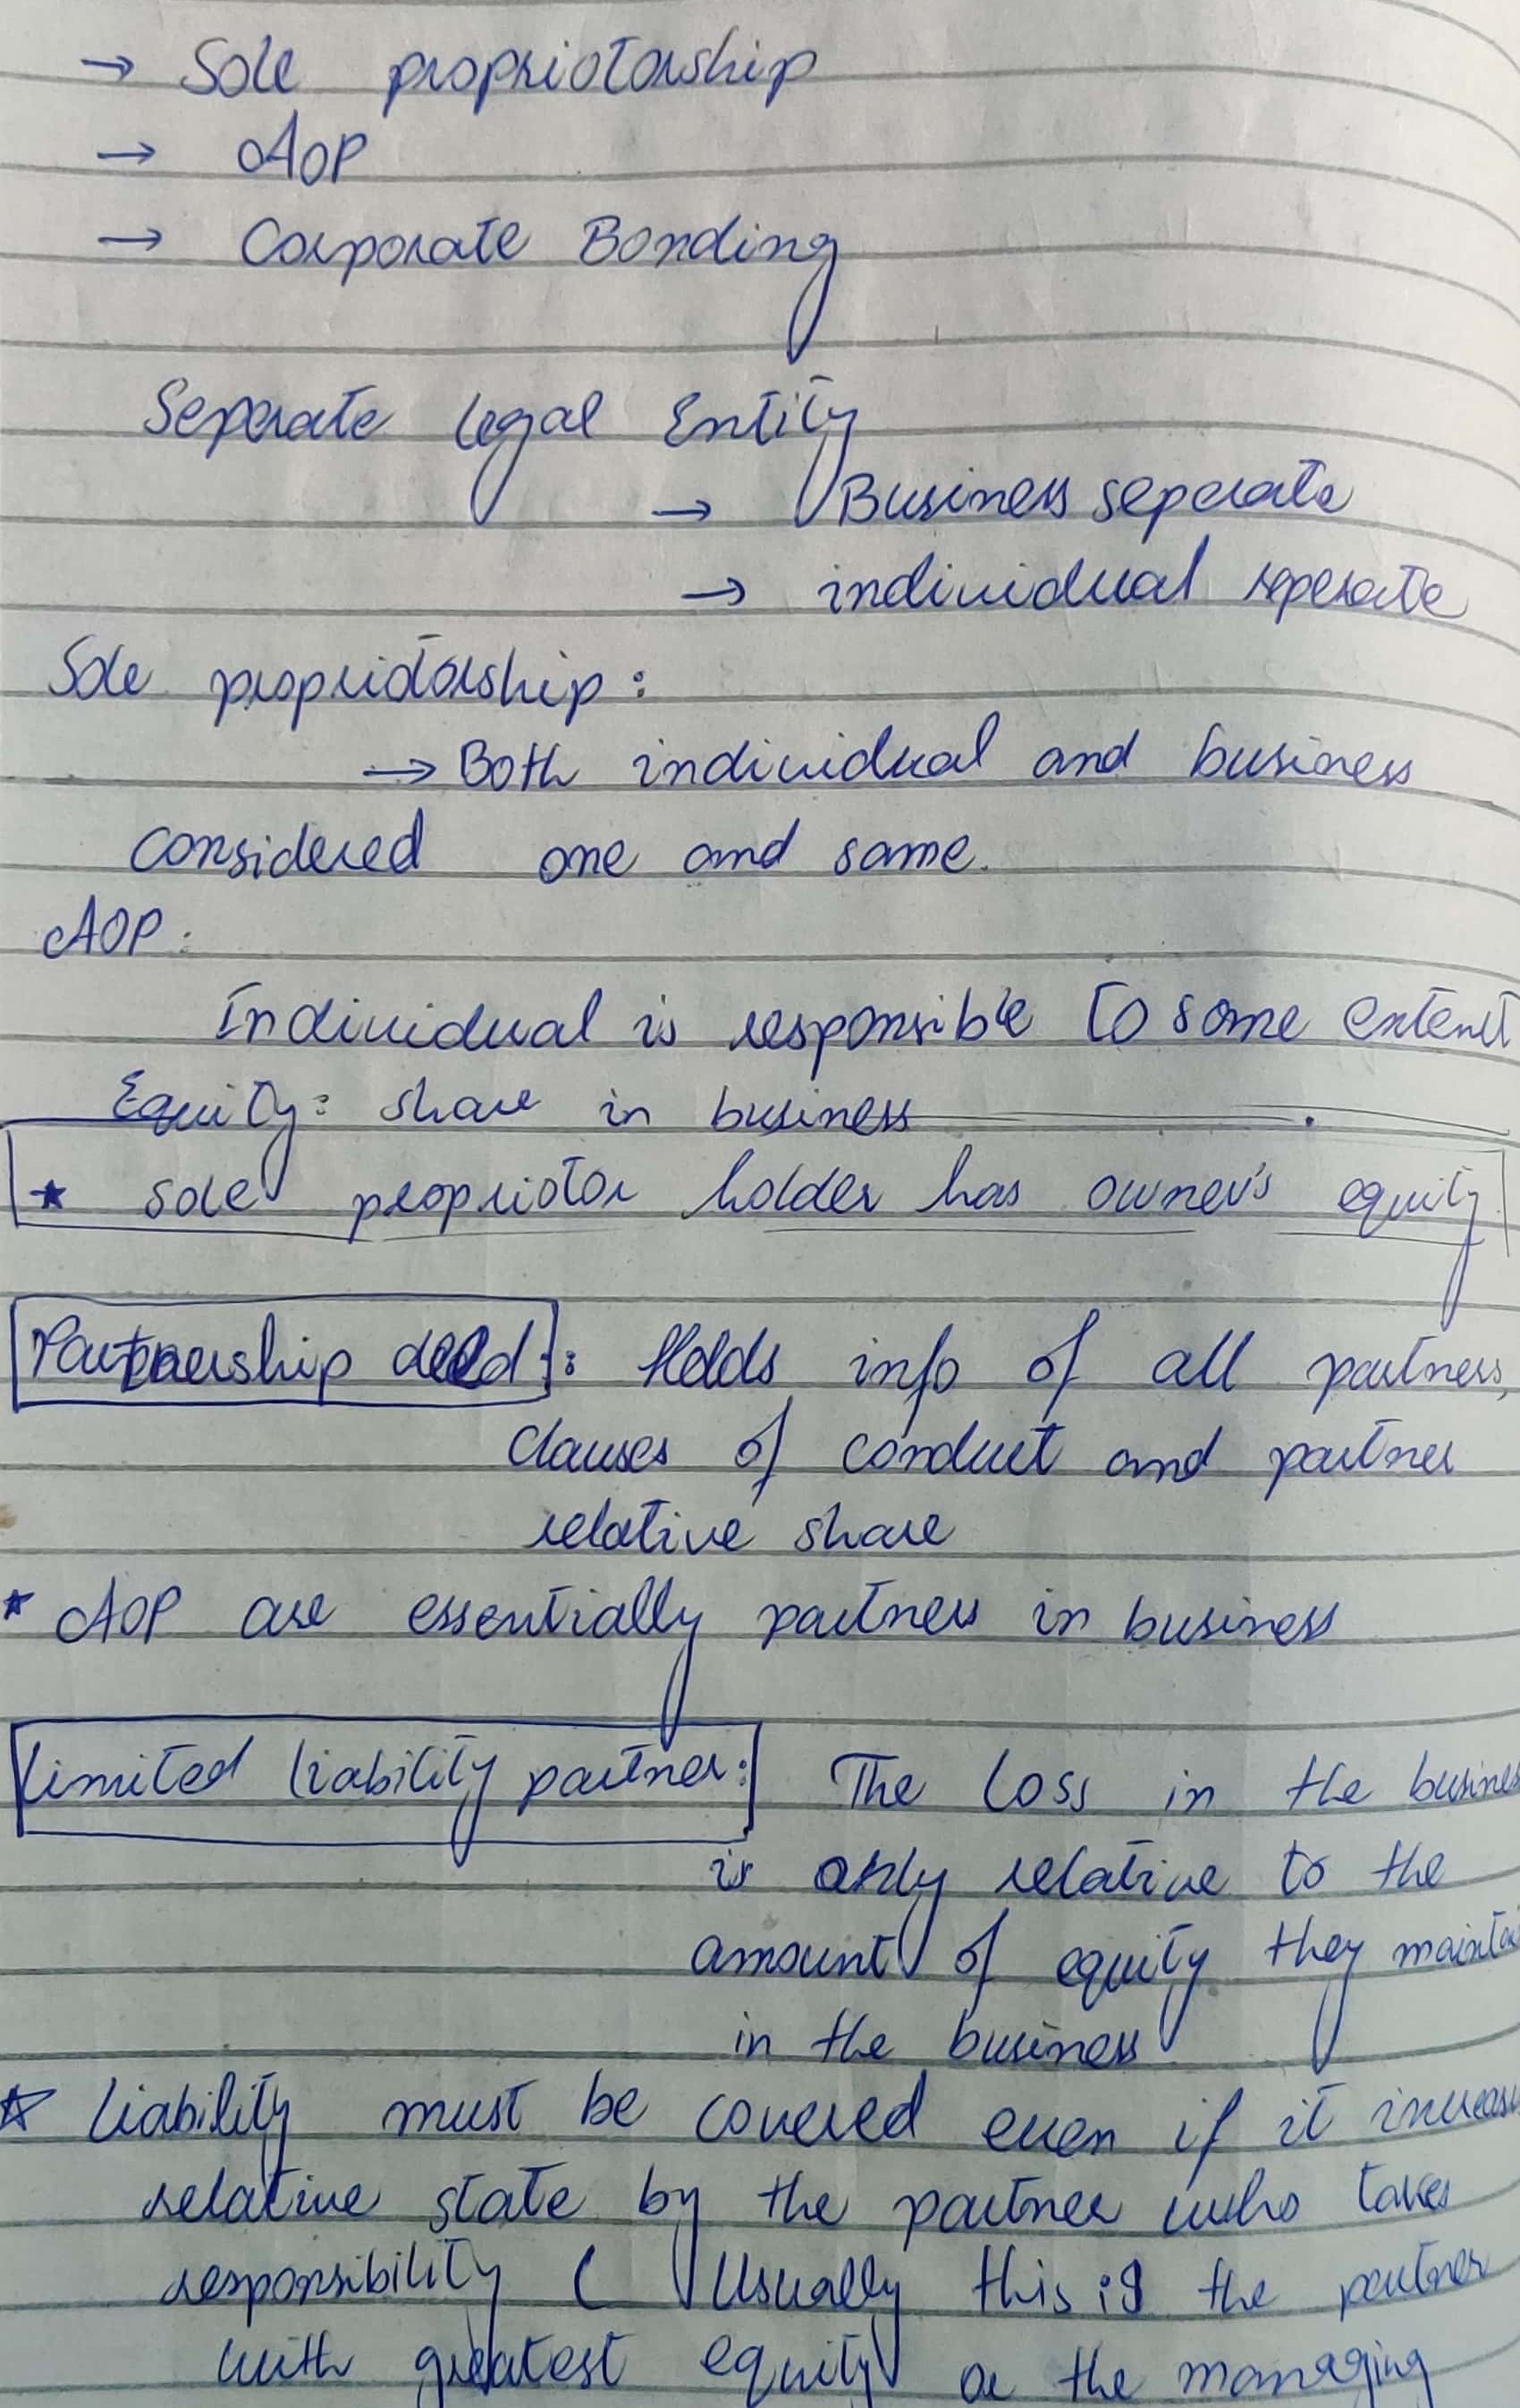 → Sole propriotorship
→ AOP
→ Corporate Bonding
Seperate legal Entity
→ Business seperate
→ individual seperate
Sole propriotorship :
→ Both individual and business
considered one and same.
AOP :
Individual is responsible to some extent
Equity : share in business
★ sole propriotor holder has owner's equity
Partnership deed : : Holds info of all partners,
clauses of conduct and partner
relative share
* AOP are essentially partners in business
Limited liability partner : The loss in the busines
is only relative to the
amount of equity they maintai
in the business
☆ Liability must be covered even if it increas
relative state by the partner who takes
responsibility ( Usually this is the partner
with greatest equity or the managing